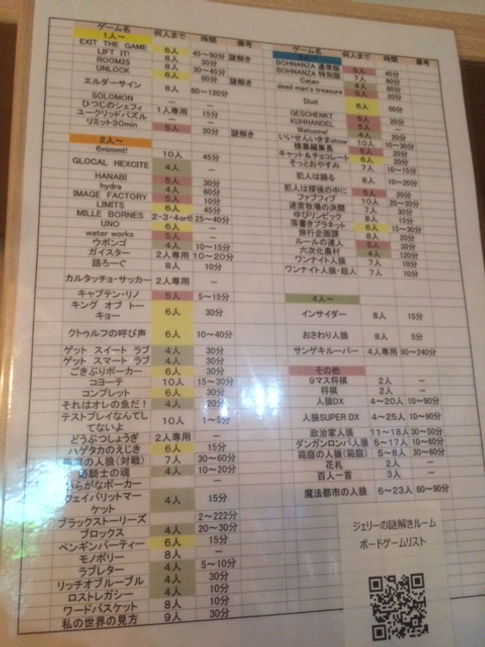 ゲーム名 何人まで 時間 備考
1人〜
EXIT THE GAME 6人 45〜90分 謎解き
LIFT IT! 8人 30分
ROOM25 8人 30〜45分
UNLOCK 6人 60分 謎解き
エルダーサイン 8人 60〜120分
SOLOMON ー ー
ひつじのシェフィ 1人専用 15分
ユークリッドパズル ー ー
リミット30min 5人 30分 謎解き
2人〜
6nimmt! 10人 45分
GLOCAL HEXCITE 4人 ー
HANABI 5人 30分
hydra 4人 60分
IMAGE FACTORY 5人 10分
LIMITS 6人 45分
MILLE BORNES 2・3・4or6 25〜40分
UNO 6人 ー
water works 5人 ー
ウボンゴ 4人 10〜15分
ガイスター 2人専用 10〜20分
語ろーぐ 8人 10分
カルタッチョ・サッカー 2人専用 ー
キャプテン・リノ 5人 5〜15分
キング オブ トーキョー 6人 30分
クトゥルフの呼び声 6人 10〜40分
ゲット スイート ラブ 4人 30分
ゲット スマート ラブ 4人 30分
ごきぶりポーカー 6人 30分
コヨーテ 10人 15〜30分
コンプレット 6人 30分
それはオレの魚だ! 4人 20分
テストプレイなんてしてないよ 10人 1〜5分
どうぶつしょうぎ 2人専用 ー
ハゲタカのえじき 6人 15分
の人狼(対戦) 7人 30〜60分
姫騎士の魂 4人 10〜20分
らがなポーカー ー ー
フェイバリットマーケット 4人 15分
ブラックストーリーズ 2〜222分
ブロックス 4人 20〜30分
ペンギンパーティー 6人 15分
モノポリー 8人 ー
ラブレター 4人 5〜10分
リッチオブルーブル 4人 30分
ロストレガシー 4人 10分
ワードバスケット 8人 10分
私の世界の見方 9人 30分
ゲーム名 何人まで 時間 備考
BOHNANZA 通常版 5人 45分
BOHNANZA 特別版 7人
Catan 4人 60分
dead man's treasure 5人 20分
Dixit 6人 50分
GESCHENKT 5人 20分
KUHHANDEL 5人
Welcome! 4人 20分
いいせんいきまshow 10人 10〜30分
横暴編集長 5人 20分
キャット&チョコレート 6人 20分
そっとおやすみ 7人 10〜15分
犯人は踊る 8人 10〜20分
犯人は探偵の中に 5人 20分
ファブフィブ 10人 20〜30分
迷宮牧場の決闘 7人 30分
ゆびリンピック 8人 15分
落書きプラネット 6人 15〜30分
旅行企画課 8人 20分
ルールの達人 5人 30分
六次化農村 4人 120分
ワンナイト人狼 7人 10分
ワンナイト人狼・超人 7人 10分
4人〜
インサイダー 8人 15分
おさわり人狼 8人 5分
サンゲキルーパー 4人専用 90〜240分
その他
9マス将棋 2人 ー
将棋 2人 ー
人狼DX 4〜20人 10〜90分
人狼SUPER DX 4〜25人 10〜90分
政治家人狼 11〜18人 30〜50分
ダンガンロンパ人狼 5〜17人 10〜60分
箱庭の人狼(箱庭) 5〜8人 30〜60分
花札 2人 ー
百人一首 3人 ー
魔法都市の人狼 6〜23人 60〜90分
ジェリーの謎解きルーム
ボードゲームリスト